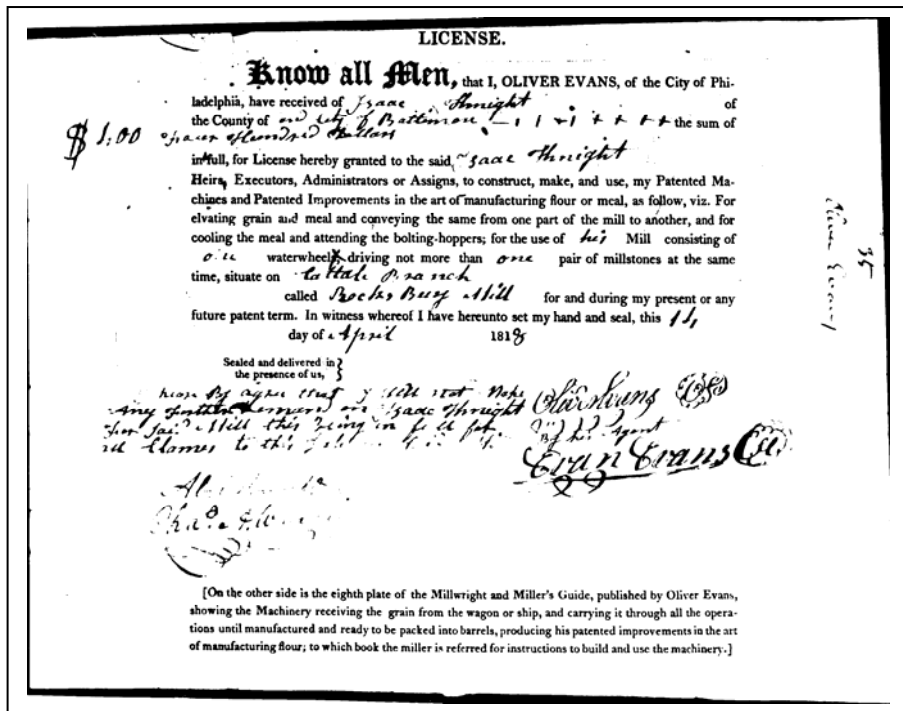 LICENSE.
Know all Men, that I, OLIVER EVANS, of the City of Phi-
ladelphia, have received of Isaac Knight of
the County of and City of Baltimore the sum of
$ 1,00 Hundred Dollars
in full, for License hereby granted to the said, Isaac Knight
Heirs, Executors, Administrators or Assigns, to construct, make, and use, my Patented Ma-
chines and Patented Improvements in the art of manufacturing flour or meal, as follow, viz. For
elvating grain and meal and conveying the same from one part of the mill to another, and for
cooling the meal and attending the bolting-hoppers; for the use of his Mill consisting of
one waterwheel, driving not more than one pair of millstones at the same
time, situate on Branch
called Rocks Bury Mill for and during my present or any
future patent term. In witness whereof I have hereunto set my hand and seal, this
day of April 1818
Sealed and delivered in
the presence of us,
agree that I will not Make
Any further demand on Isaac Knight
for said Mill this being in full for
Clames to this
Oliver Evans
By his Agent
Evan Evans
Oliver Evans
35
[On the other side is the eighth plate of the Millwright and Miller's Guide, published by Oliver Evans,
showing the Machinery receiving the grain from the wagon or ship, and carrying it through all the opera-
tions until manufactured and ready to be packed into barrels, producing his patented improvements in the art
of manufacturing flour; to which book the miller is referred for instructions to build and use the machinery.]